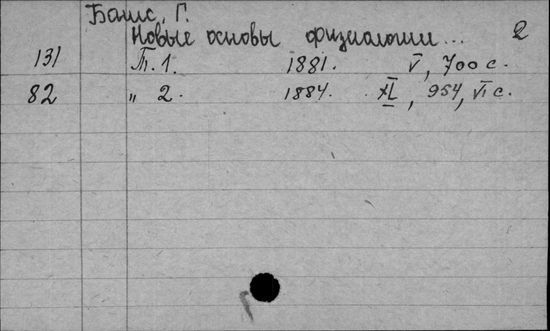 Баис, Г.
Новые основы физиологии... 2
131 Т. 1. 1881. V, 700 с.
82 " 2. 1884. XI, 954, VI с.